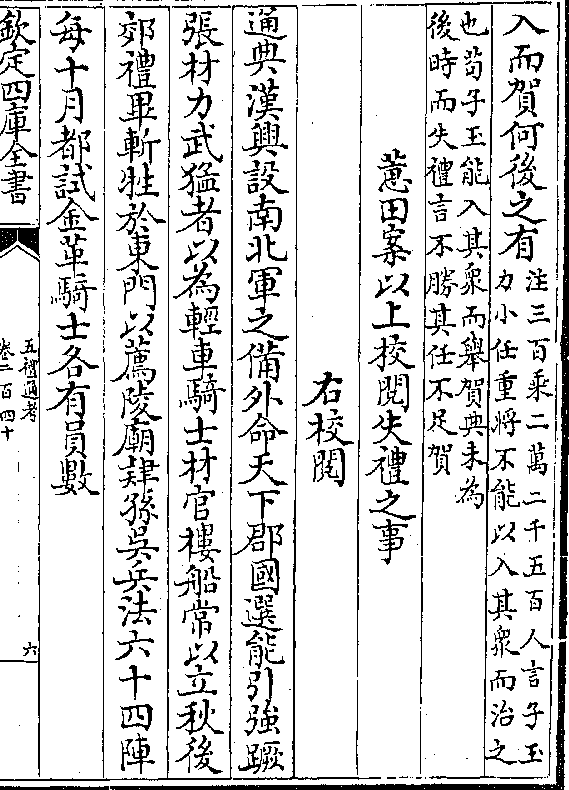 入而賀何後之有注三百乘二萬二千五百人言子玉
力小任重將不能以入其衆而治之
也苟子玉能入其衆而舉賀典未為
後時而失禮言不勝其任不足賀
蕙田案以上校閱失禮之事
右校閱
通典漢興設南北軍之備外命天下郡國選能引強蹶
張材力武猛者以為輕車騎士材官樓船常以立秋後
郊禮畢斬牲於東門以薦陵廟肄孫吳兵法六十四陣
每十月都試金革騎士各有員數
欽定四庫全書
五禮通考
卷二百四十
六